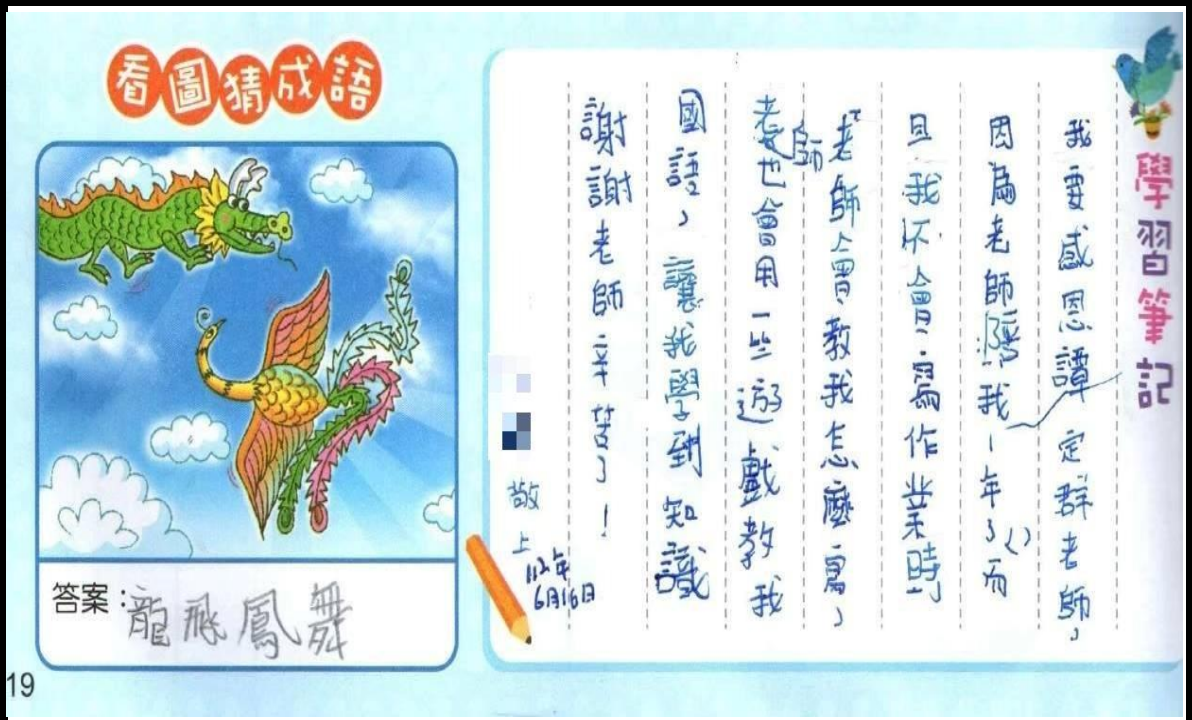 看圖猜成語
答案：龍飛鳳舞
19
學習筆記
我要感恩譚定群老師，
因為老師陪我一年了，而
且我不會寫作業時
老師會教我怎麼寫，
老師也會用一些遊戲教我
國語，讓我學到知識
謝謝老師辛苦了！
敬上
112年
6月16日